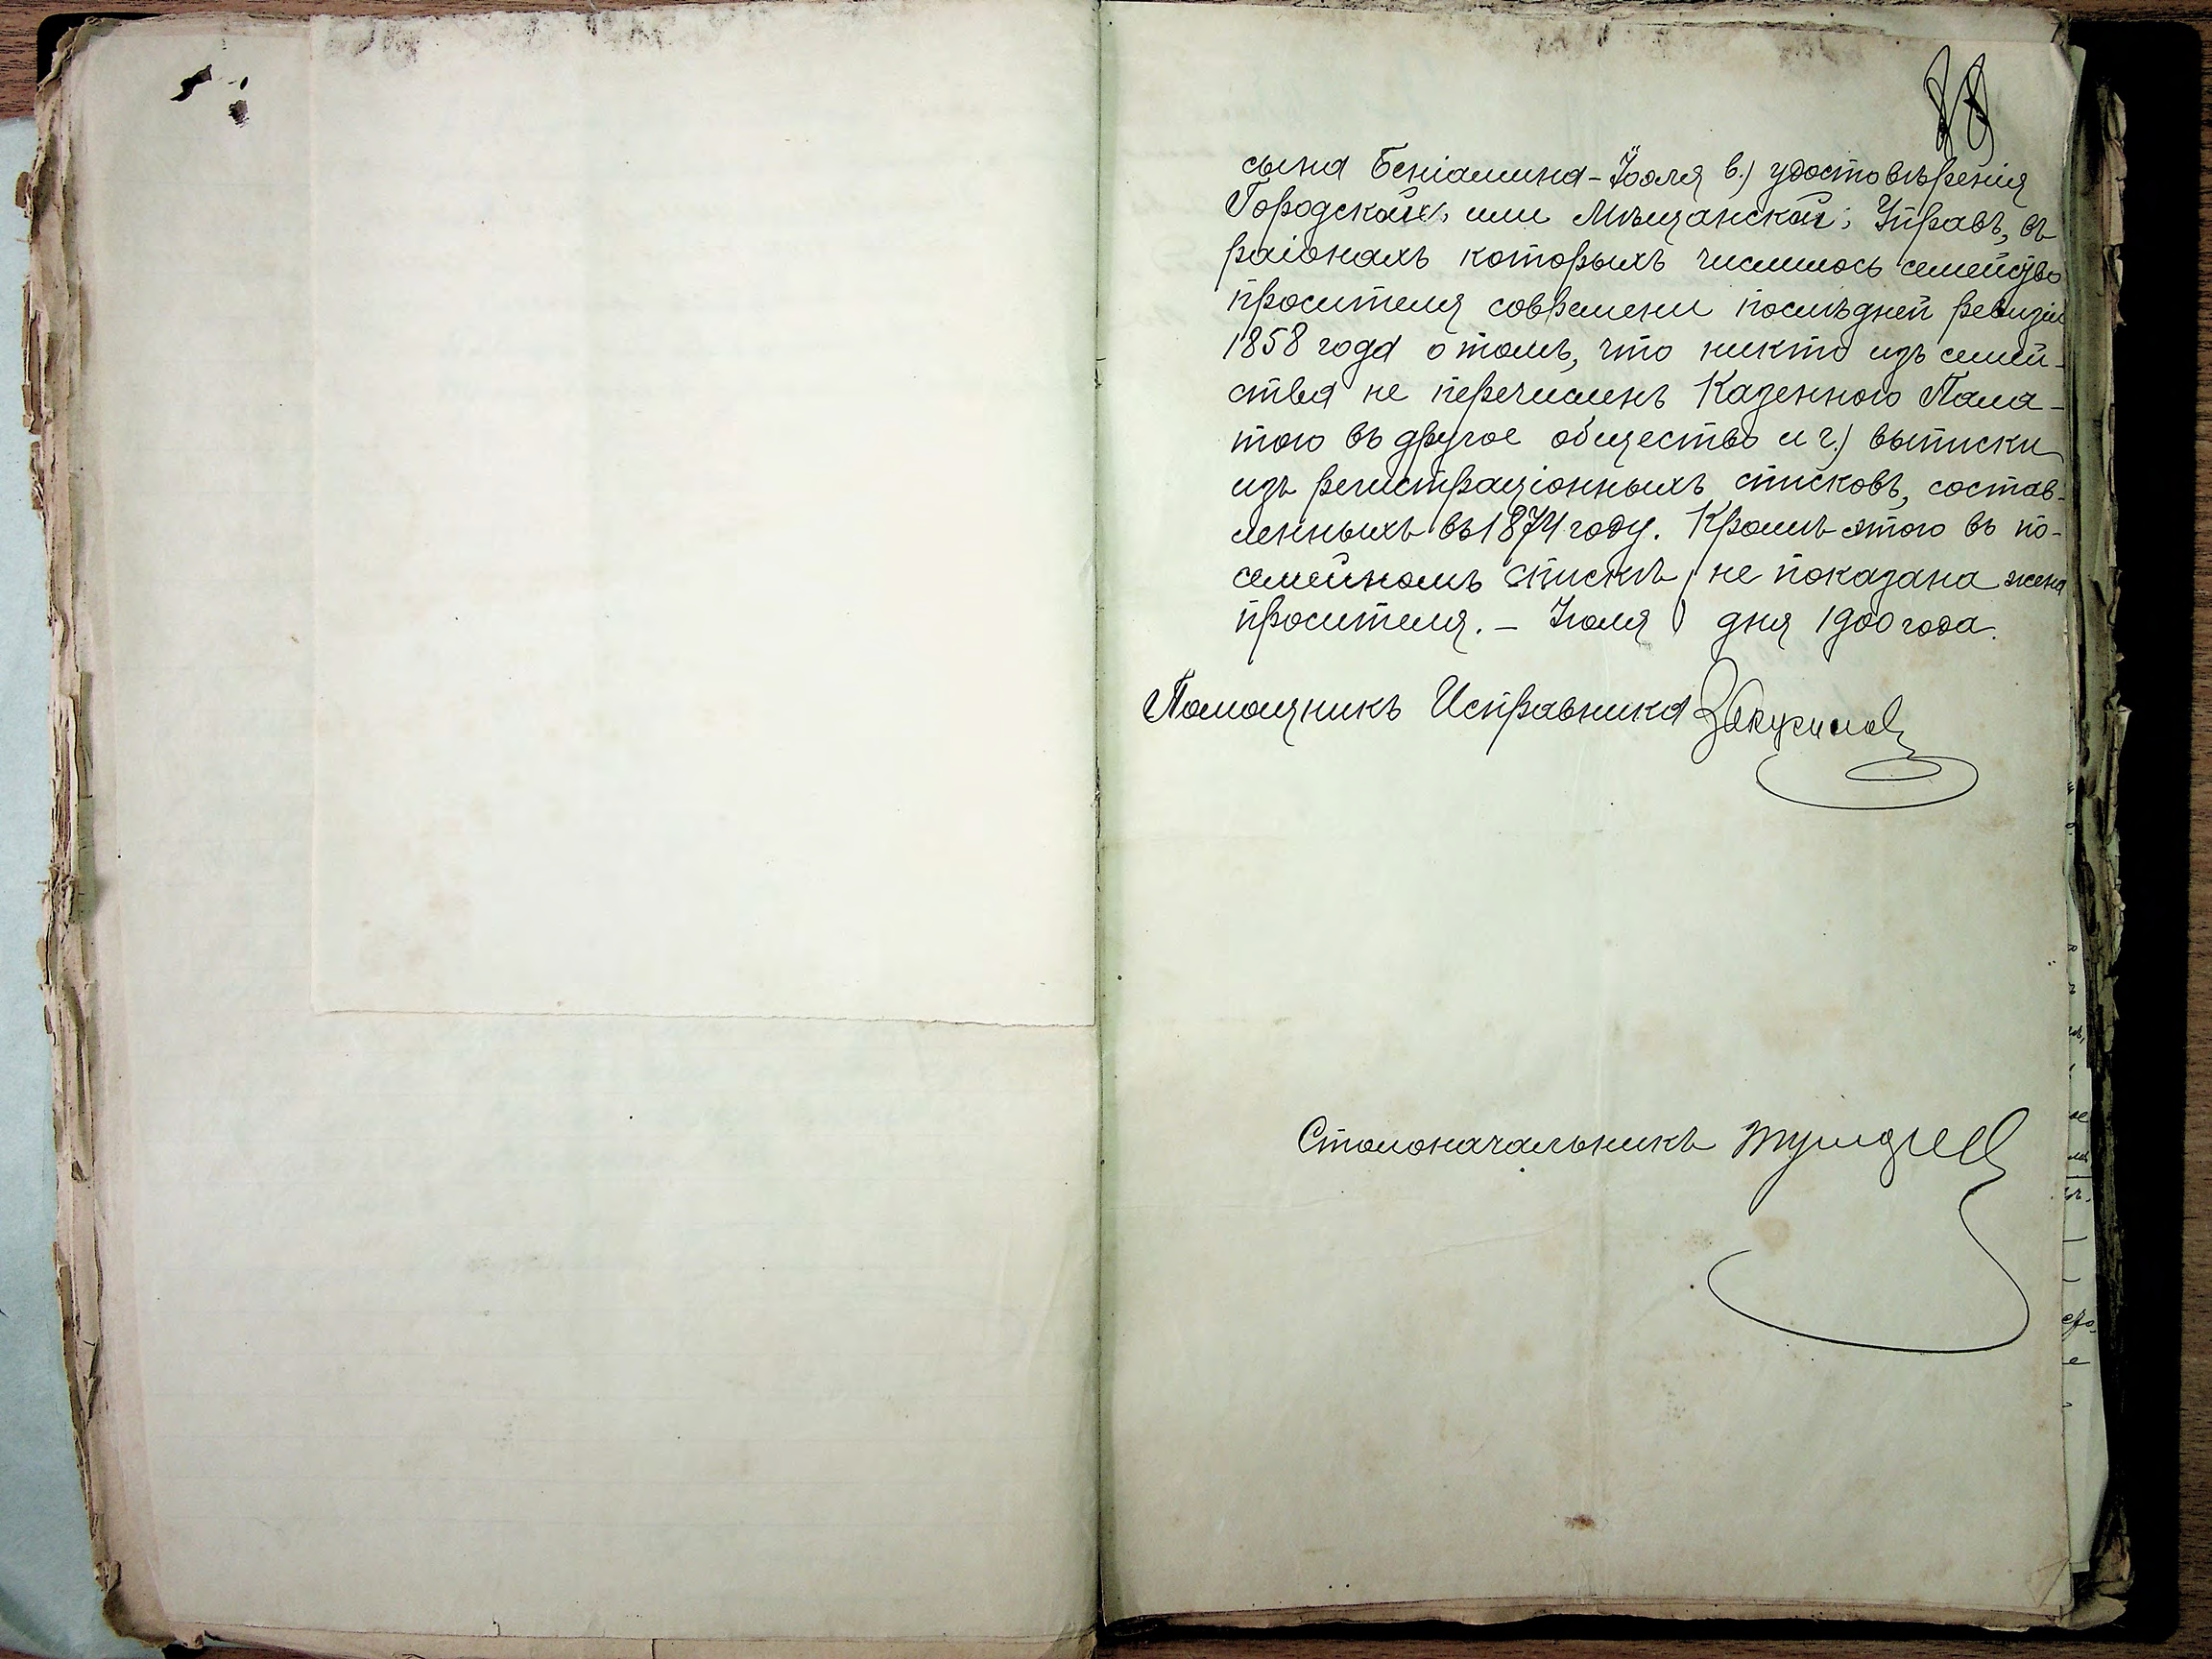 88
сына Беніамина-Іоэля в.) удостовѣренія
Городской, или Мѣщанской, Управъ, въ
раіонахъ которыхъ числилось семейство
просителя современи послѣдней ревизіи
1858 года о томъ, что никто изъ семей-
ства не перечисленъ Казенною Пала-
тою въ другое общество и г.) выписки
изъ регистраціонныхъ списковъ, состав-
ленныхъ въ 1874 году. Кромѣ этого въ по-
семейномъ спискѣ не показана жена
просителя. – Іюля дня 1900 года.
Помощникъ Исправника
Столоначальникъ